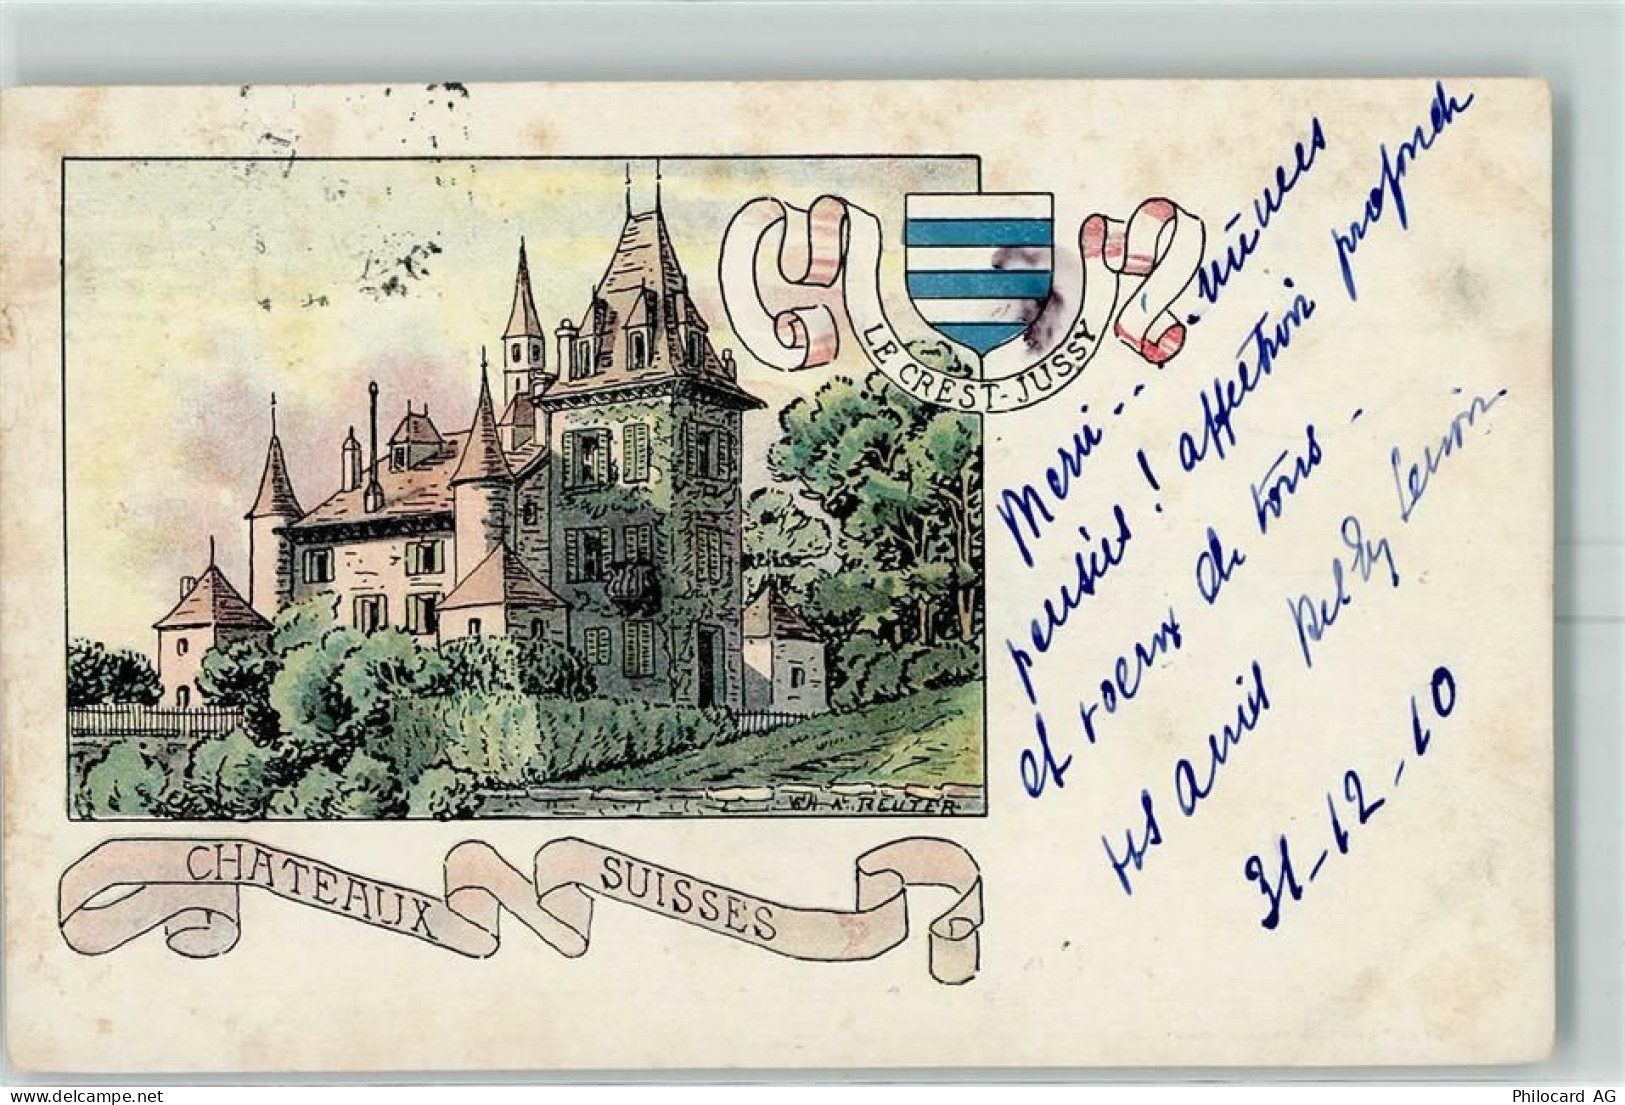 LE CREST-JUSSY
CH A REUTER
CHATEAUX SUISSES
Merci... mêmes
pensées ! affection profonde
et voeux de tous -
vos amis
31-12-10
delcampe.net
Philocard AG